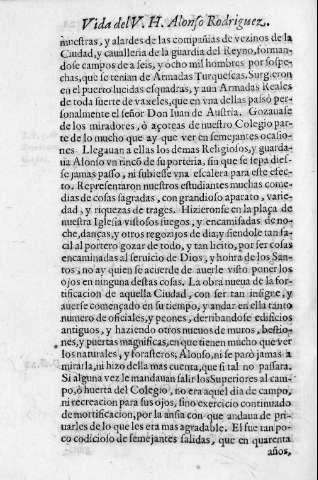 Vida del V. H. Alonso Rodriguez.
muestras, y alardes de las compañias de vezinos de la
Ciudad, y cauallería de la guardia del Reyno, forman-
dose campos de a seis, y ocho mil hombres por sospe-
chas, que se tenian de Armadas Turquescas. Surgieron
en el puerto lucidas esquadras, y aun Armadas Reales
de toda suerte de vaxeles, que en vna dellas passò per-
sonalmente el señor Don Iuan de Austria. Gozauase
de los miradores, ò açoteas de nuestro Colegio par-
te de lo mucho que ay que ver en semejantes ocasio-
nes. Lleuauan a ellas los demas Religiosos, y guarda-
ua Alonso vn rincõ de su porteria, sin que se sepa dies-
se jamas passo, ni subiesse vna escalera para este efec-
to. Representaron nuestros estudiantes muchas come-
dias de cosas sagradas, con grandioso aparato, varie-
dad, y riquezas de trages. Hizieronse en la plaça de
nuestra Iglesia vistosos iuegos, y encamisadas de no-
che, danças, y otros regozijos de dia; y siendole tan fa-
cil al portero gozar de todo, y tan licito, por ser cosas
encaminadas al seruicio de Dios, y honra de los San-
tos, no ay quien se acuerde de auerle visto poner los
ojos en ninguna destas cosas. La obra nueua de la for-
tificacion de aquella Ciudad, con ser tan insigne, y
auerse començado en su tiempo, y andar en ella tanto
numero de oficiales, y peones, derribandose edificios
antiguos, y haziendo otros nueuos de muros, bestio-
nes, y puertas magnificas, en que tienen mucho que ver
los naturales, y forasteros; Alonso, ni se parò jamas a
mirarla, ni hizo della mas cuenta, que si tal no passara.
Si alguna vez le mandauan salir los Superiores al cam-
po, ò huerta del Colegio, no era aquel dia de campo,
ni recreacion para sus ojos, sino exercicio continuado
de mortificacion, por la ansia con que andaua de pri-
uarles de lo que les era mas agradable. El fue tan po-
co codicioso de semejantes salidas, que en quarenta
años,